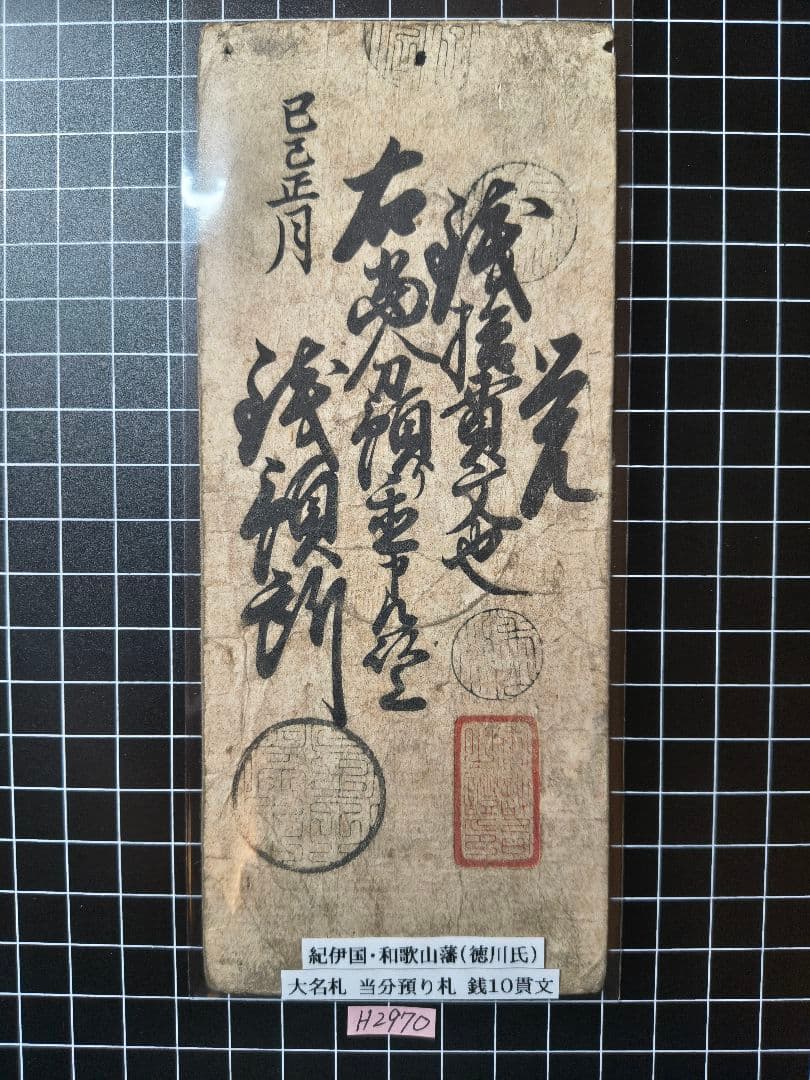 覚
銭拾貫文也
右當分預り置申
銭預所
巳己正月
紀伊国・和歌山藩(徳川氏)
大名札 当分預り札 銭10貫文
H2970